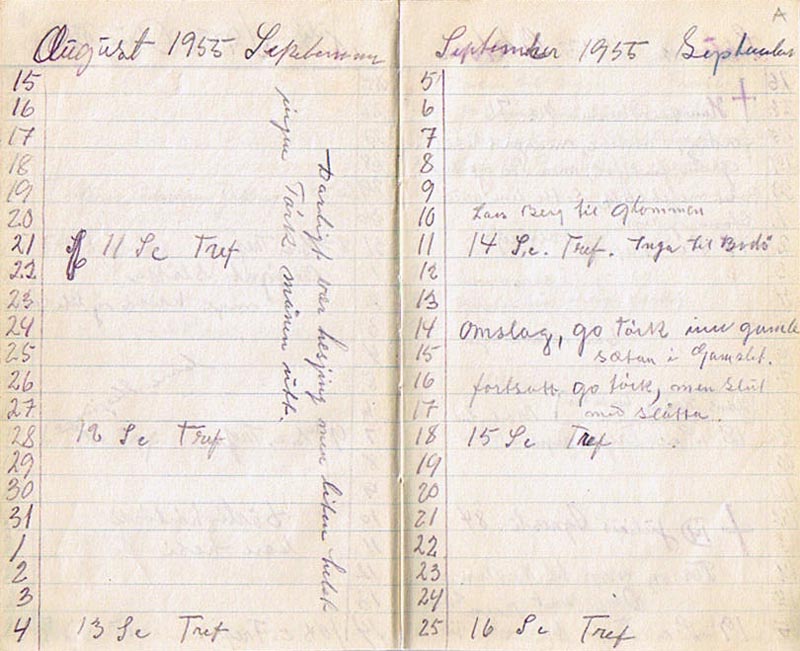 August 1955 September
15
16
17
18
19
20
21 11 Se Tref
22
23
24
25
26
27
28 12 Se Tref
29
30
31
1
2
3
4 13 Se Tref
Darligt vær hesjing men liten helst
ingen Törk månen utt.
A
September 1955 September
5
6
7
8
9
10 Lars Berg til Glommen
11 14 Se. Tref. Inga til Bodö
12
13
14 Omslag, go törk inn gamle
15 sætan i Gamslet.
16 fortsatt go törk, men slut
17 med slåtta.
18 15 Se Tref
19
20
21
22
23
24
25 16 Se Tref